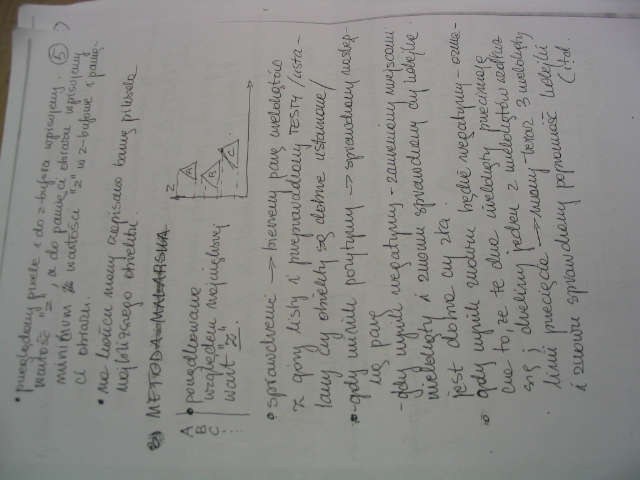 • przeglądamy piksele i do z-bufora wpisujemy (5)
wartość "z", a do pamięci obrazu wpisujemy
minimum wartości "z" w z-buforze i pamię-
ci obrazu.
• na końcu mamy zapisano barwę piksela
najbliższego obiektu.
METODA MALARSKA
A • poządkowane
B względem największej
C wart "z"
⋮
Z
A
B
C
• sprawdzenie → bierzemy parę wielokątów
z góry listy i przeprowadzamy TESTY /usta-
lamy czy obiekty są dobrze ustawione/
- gdy wyniki pozytywny → sprawdzamy następ-
ną parę
- gdy wyniki negatywny - zamieniamy miejscami
wielokąty i znowu sprawdzamy czy kolejka
jest dobra czy zła.
• gdy wyniki znowu będzie negatywny - ozna-
cza to, że te dwa wielokąty przecinają
się i dzielimy jeden z wielokątów wzdłuż
linii przecięcia → mamy teraz 3 wielokąty
i znowu sprawdzamy poprawność kolejki
itd.